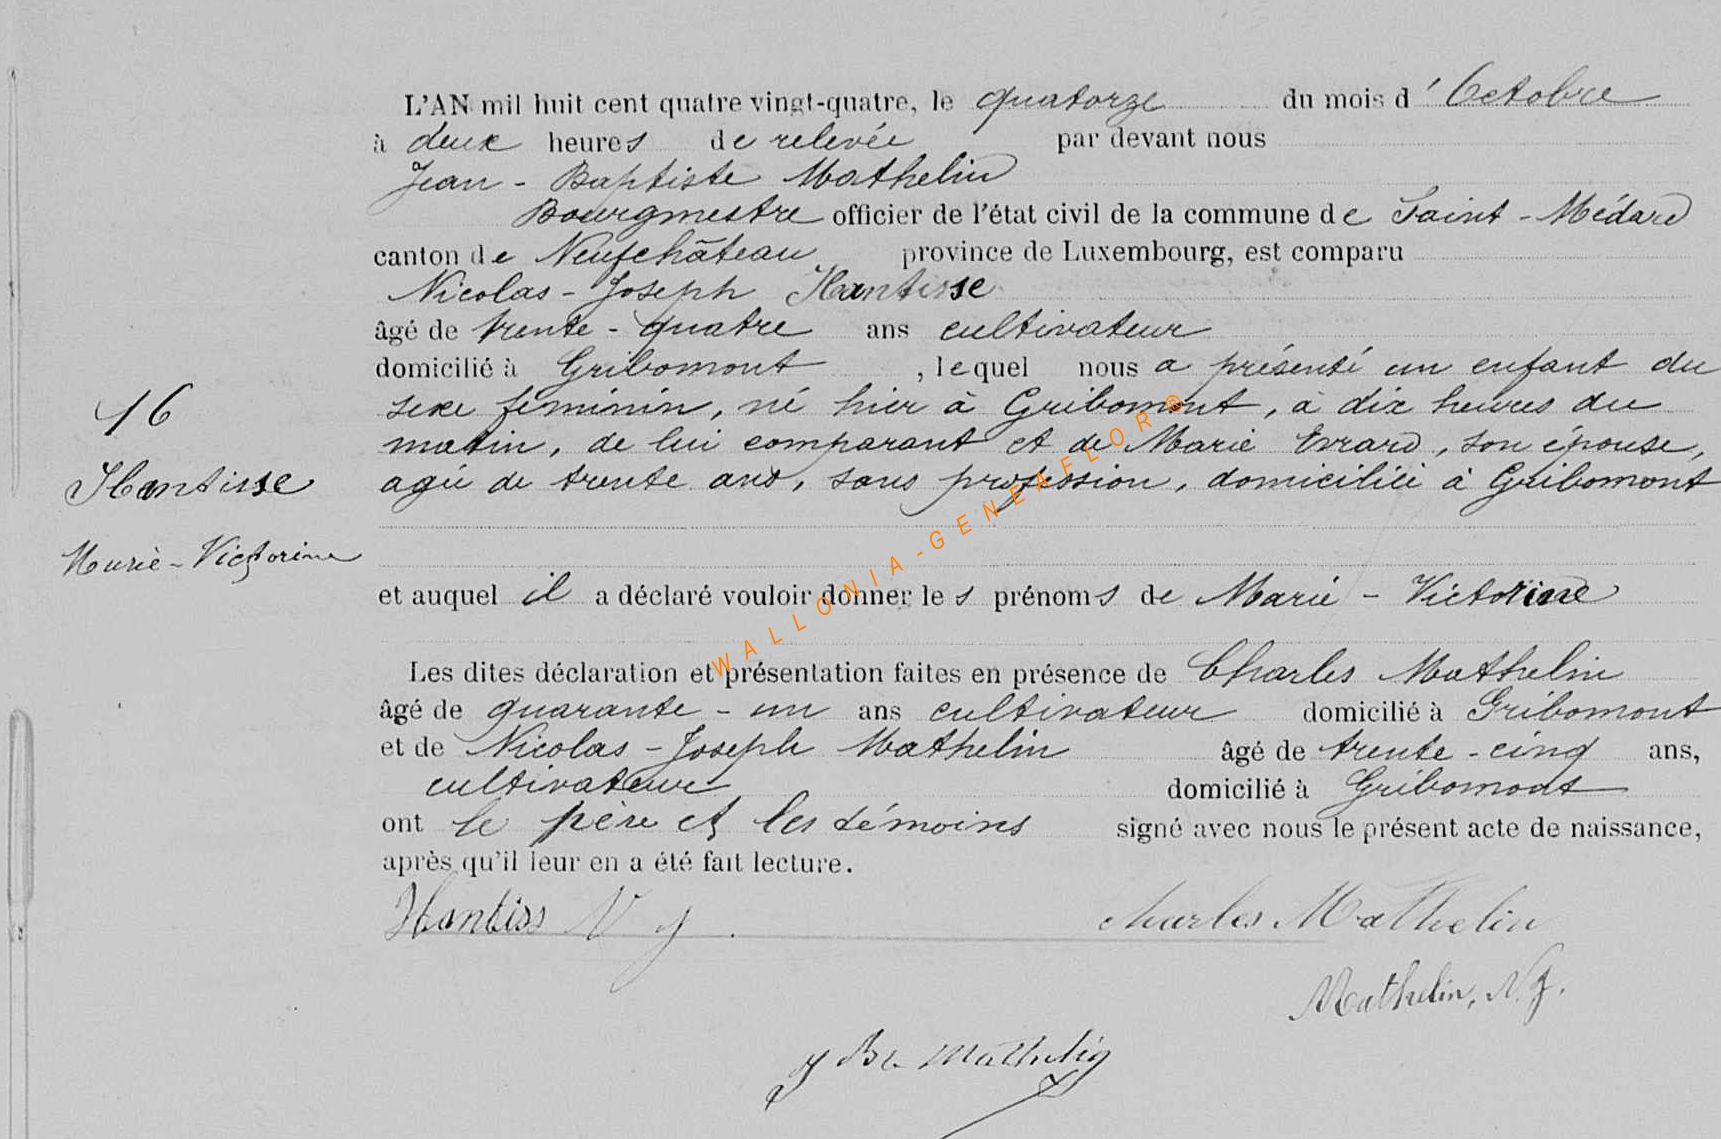 L'AN mil huit cent quatre vingt-quatre, le quatorze du mois d'Octobre
à deux heures de relevée par devant nous
Jean-Baptiste Mathelin
Bourgmestre officier de l'état civil de la commune de Saint-Médard
canton de Neufchâteau province de Luxembourg, est comparu
Nicolas-Joseph Hantisse
âgé de trente-quatre ans cultivateur
domicilié à Gribomont, lequel nous a présenté un enfant du
16
sexe féminin, né hier à Gribomont, à dix heures du
matin, de lui comparant et de Marie Evrard, son épouse,
Hantisse
agée de trente ans, sans profession, domiciliée à Gribomont
Marie-Victorine
et auquel il a déclaré vouloir donner les prénoms de Marie-Victorine
Les dites déclaration et présentation faites en présence de Charles Mathelin
âgé de quarante-un ans cultivateur domicilié à Gribomont
et de Nicolas-Joseph Mathelin âgé de trente-cinq ans,
cultivateur domicilié à Gribomont
ont le père et les témoins signé avec nous le présent acte de naissance,
après qu'il leur en a été fait lecture.
Hantiss N J. Charles Mathelin
Mathelin, N. J.
J Bte Mathelin
WALLONIA-GENEAFLOR®